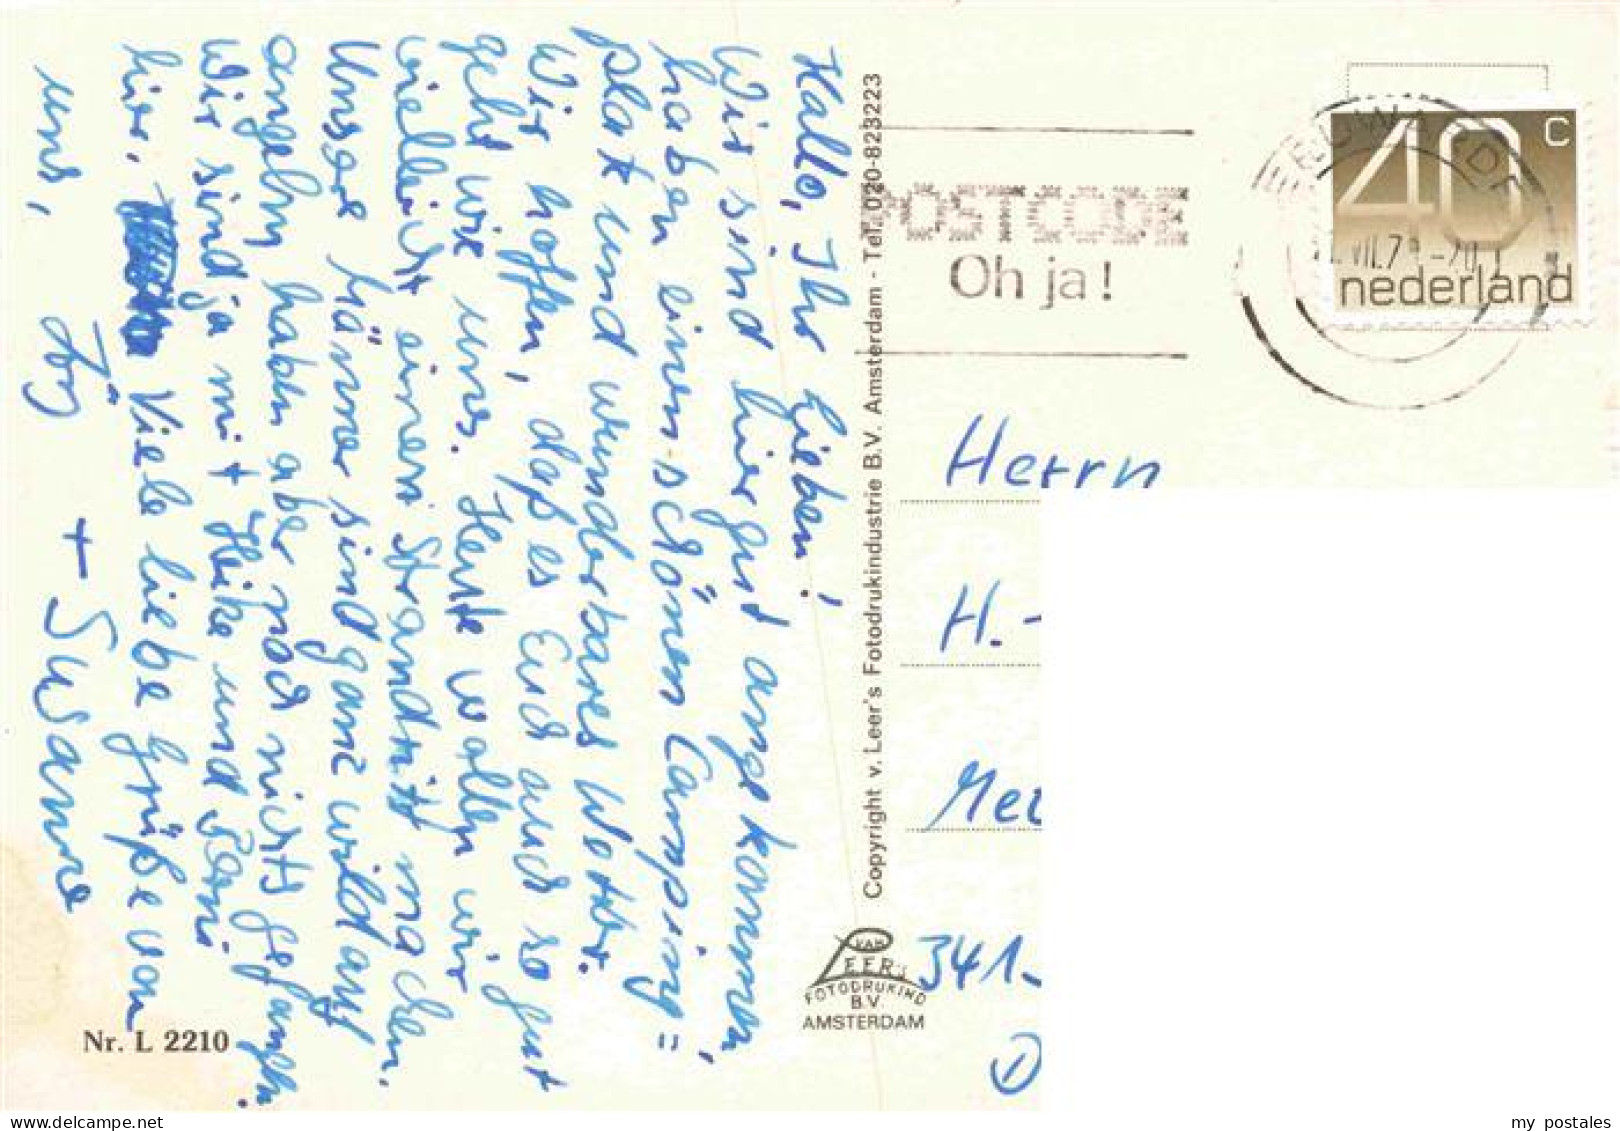 Hallo, Ihr Lieben!
Wir sind hier gut angekommen,
haben einen schönen Camping=
platz und wunderbares Wetter.
Wir hoffen, daß es Euch auch so gut
geht wie uns. Heute wollen wir
vielleicht einen Strandritt machen.
Unsere Männer sind ganz wild auf
angeln haben aber noch nichts gefangen.
Wir sind ja mit Heike und Berni
hier. Viele liebe Grüße von
uns, Jörg + Susanne
Nr. L 2210
Copyright v. Leer's Fotodrukindustrie B.V. Amsterdam - Tel. 020-823223
VAN
LEER'S
FOTODRUKIND
B.V.
AMSTERDAM
POSTCODE
Oh ja!
40 c
nederland
Herrn
H.-
341-
my postales